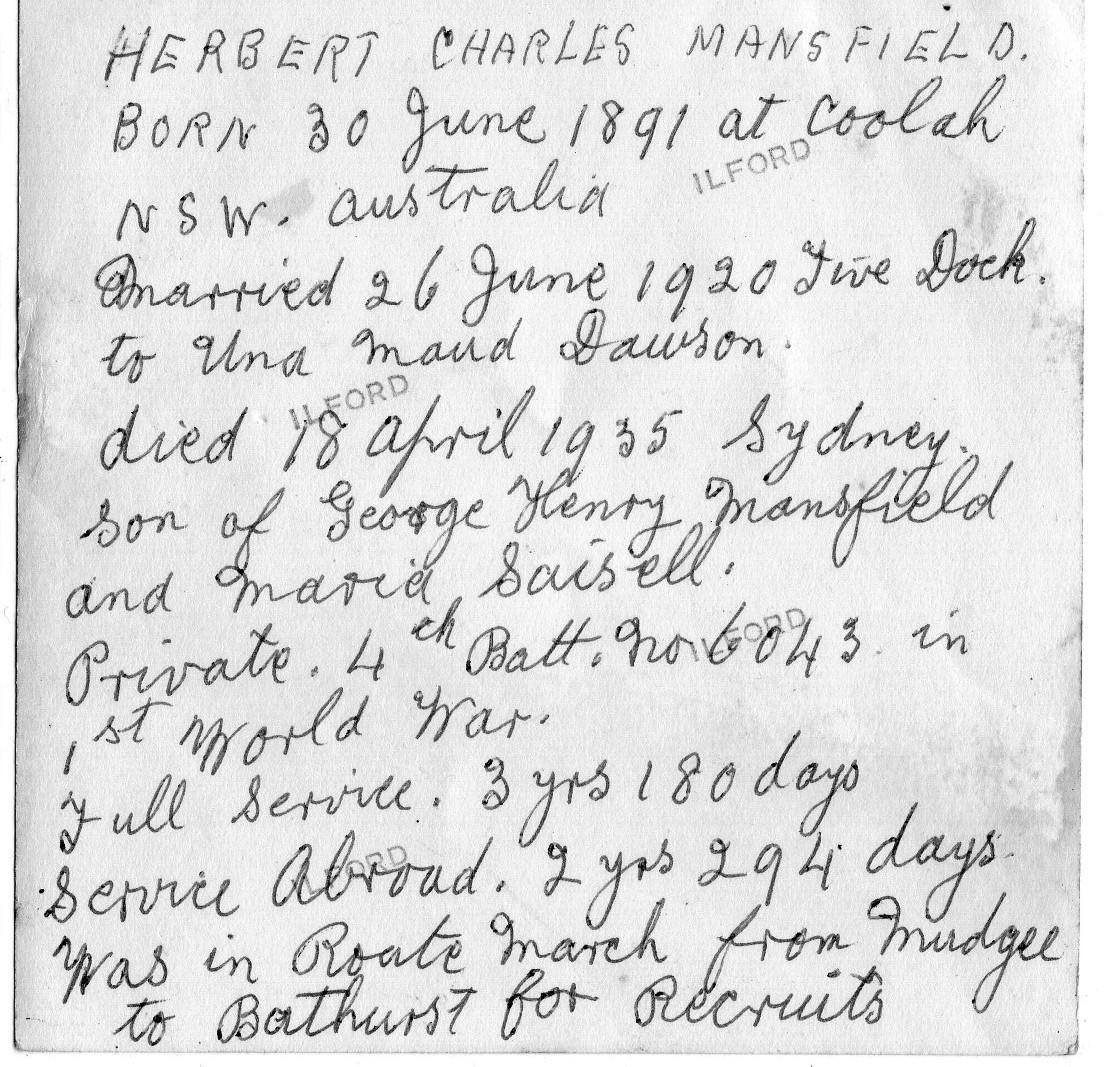 HERBERT CHARLES MANSFIELD.
BORN 30 June 1891 at Coolah
ILFORD
NSW. Australia
Married 26 June 1920 Five Dock.
to Una Maud Dawson.
ILFORD
died 18 April 1935 Sydney.
son of George Henry Mansfield
and Maria Saisell.
ILFORD
Private. 4th Batt. No 6043 in
1st World War.
Full Service. 3 yrs 180 days
ILFORD
Service Abroad. 2 yrs 294 days
Was in Route March from Mudgee
to Bathurst for Recruits